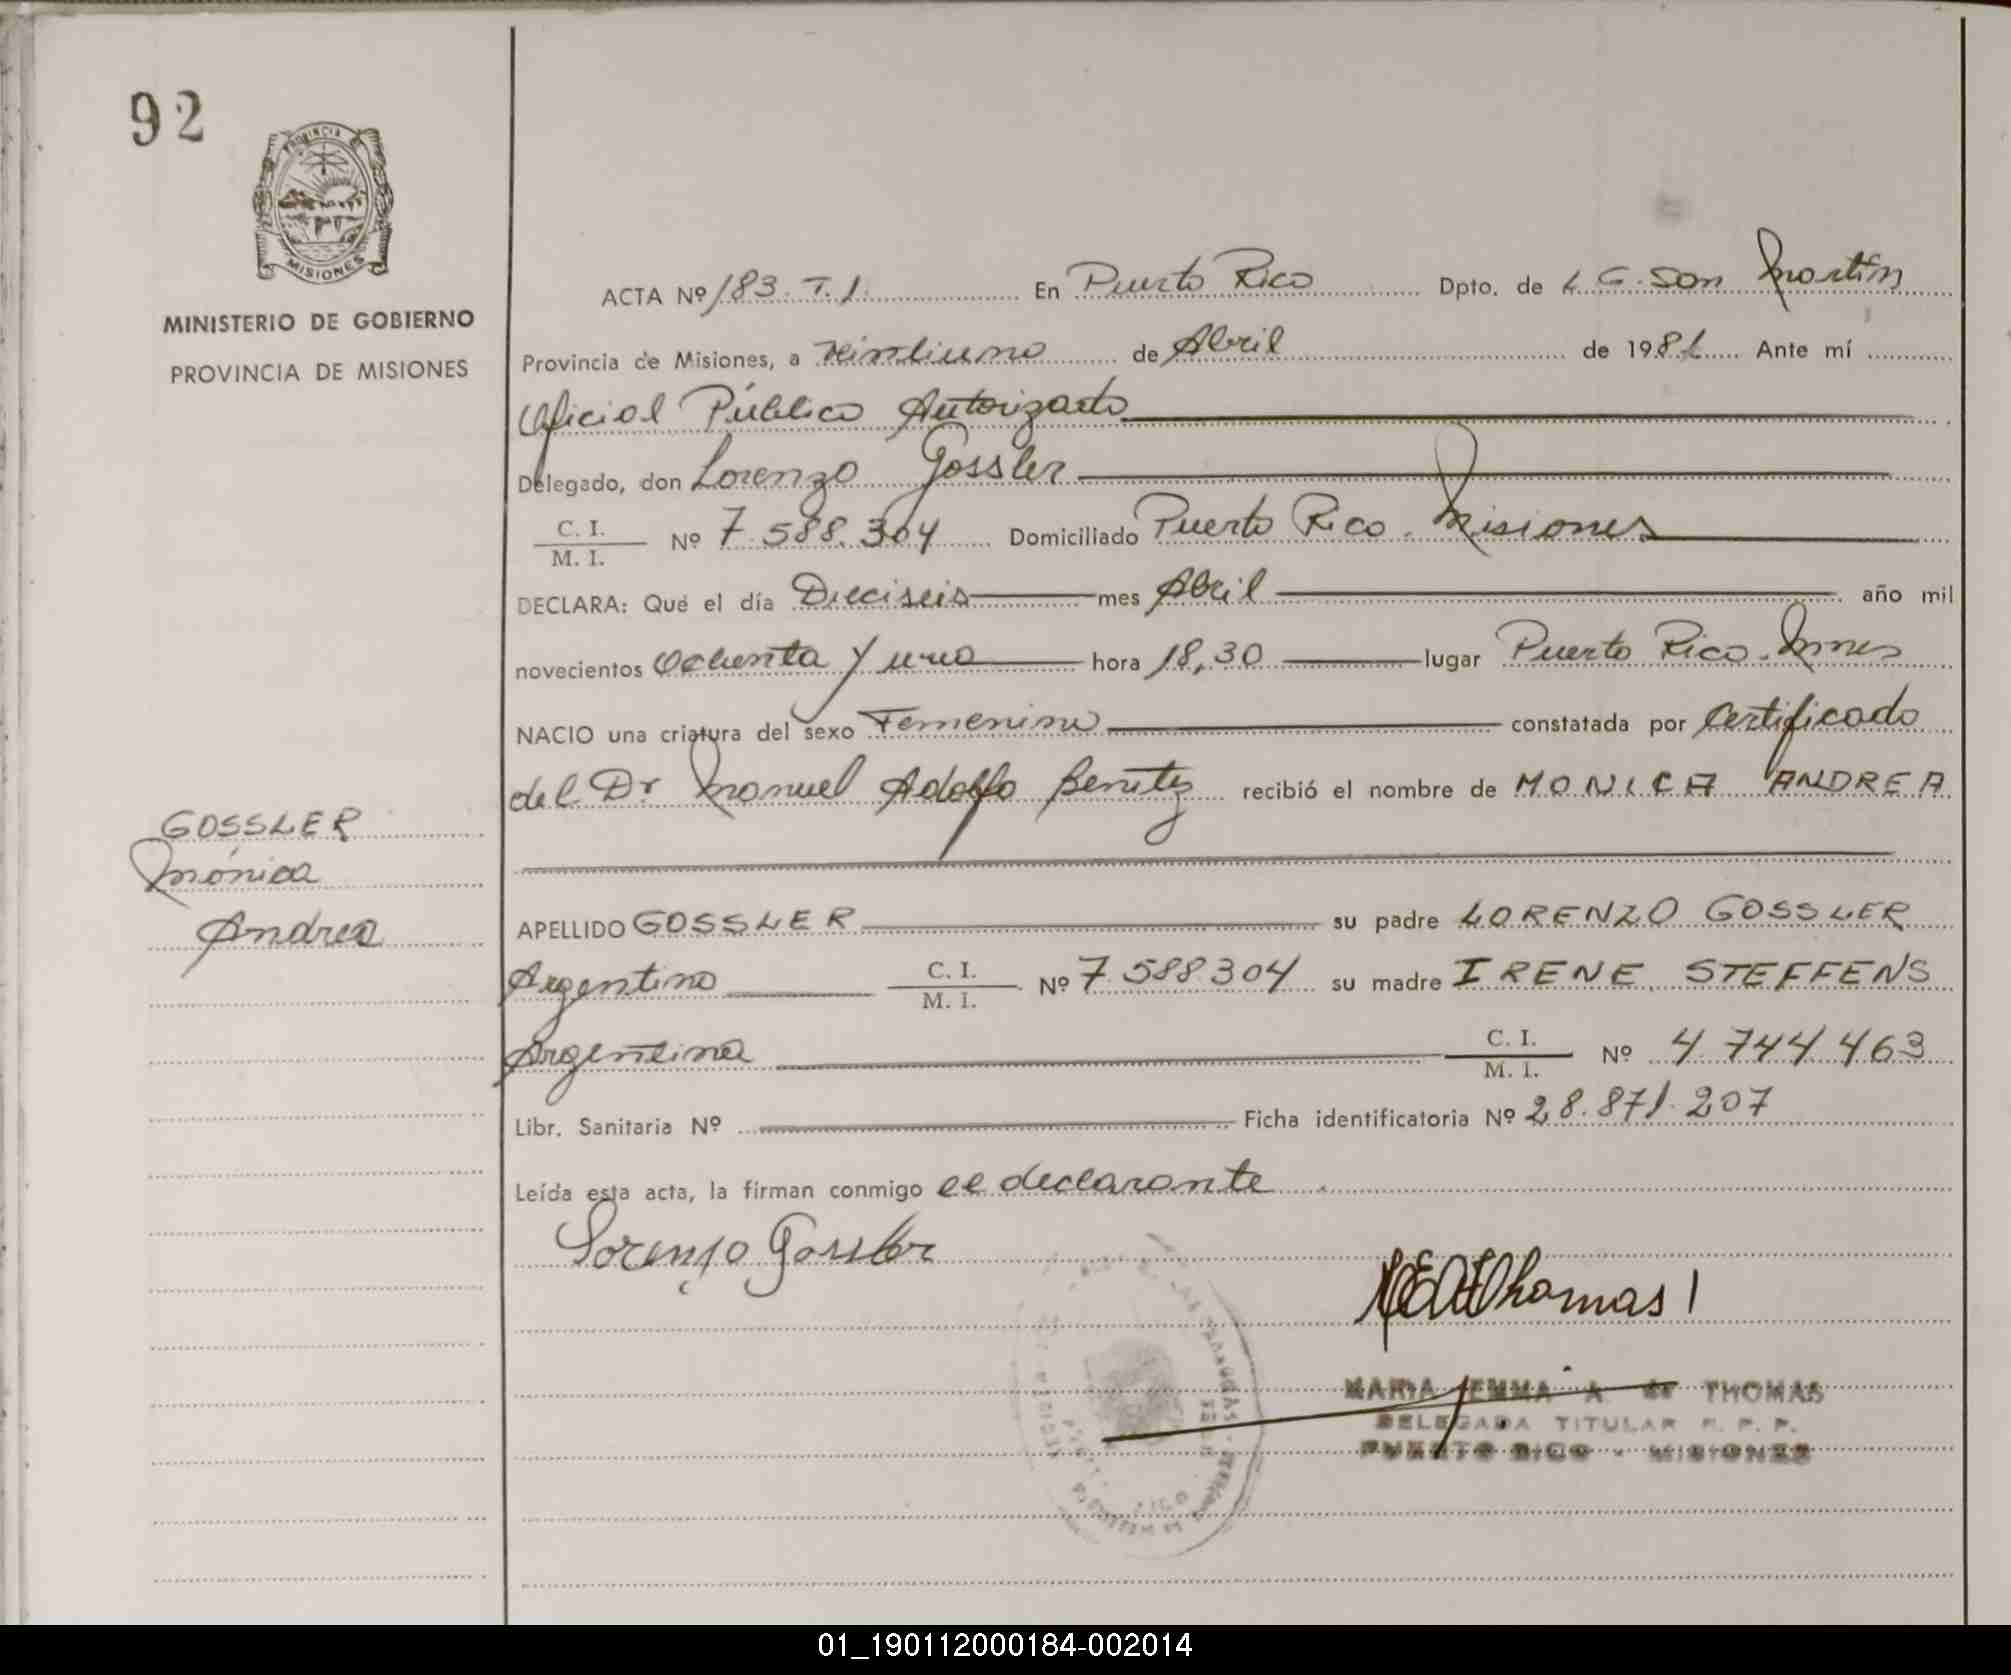 92
PROVINCIA
MISIONES
MINISTERIO DE GOBIERNO
PROVINCIA DE MISIONES
GOSSLER
Mónica
Andrea
ACTA Nº 183. T. 1. En Puerto Rico Dpto. de L. G. San Martín
Provincia de Misiones, a Veintiuno de Abril de 1981 Ante mí
Oficial Público Autorizado
Delegado, don Lorenzo Gossler
C. I.
M. I. Nº 7.588.304 Domiciliado Puerto Rico. Misiones
DECLARA: Que el día Dieciseis mes Abril año mil
novecientos Ochenta y uno hora 18,30 lugar Puerto Rico. Mnes
NACIO una criatura del sexo Femenino constatada por Certificado
del Dr Manuel Adolfo Benitez recibió el nombre de MONICA ANDREA
APELLIDO GOSSLER su padre LORENZO GOSSLER
Argentino C. I.
M. I. Nº 7.588.304 su madre IRENE STEFFENS
Argentina C. I.
M. I. Nº 4.744.463
Libr. Sanitaria Nº Ficha identificatoria Nº 28.871.207
Leída esta acta, la firman conmigo el declarante
Lorenzo Gossler
Thomas
MARIA EMMA A. de THOMAS
DELEGADA TITULAR R. P. P.
PUERTO RICO - MISIONES
01_190112000184-002014